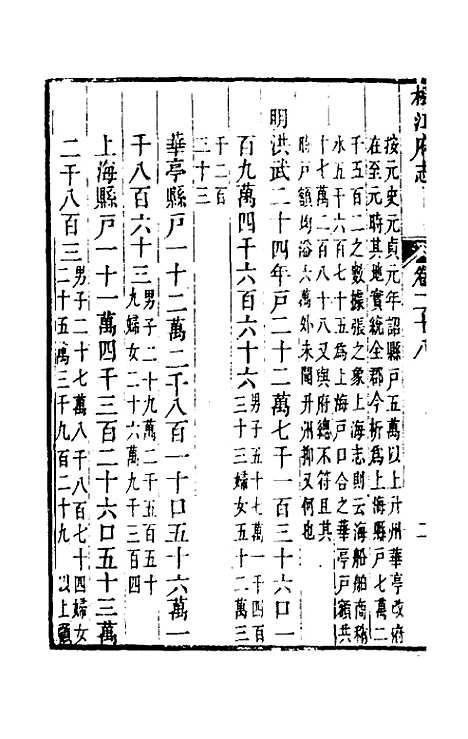 松江府志
卷二十八
二
按元史元貞元年詔縣戶五萬以上升州華亭改府
在至元時其地實統全郡今析爲上海縣戶七萬二
千五百二之數據張之象上海志則云海船舶商稍
水五千六百七十五爲上海戶口合之華亭戶額共
十七萬二百八十八又與府總不符且其
時戶額均溢六萬外未聞升州抑又何也
明洪武二十四年戶二十二萬七千一百三十六口一
百九萬四千六百六十六
男子五十七萬一千四百
三十三婦女五十二萬三
千二百
三十三
華亭縣戶一十二萬二千八百一十口五十六萬一
千八百六十三
男子二十九萬二千五百五十
九婦女二十六萬九千三百四
上海縣戶一十一萬四千三百二十六口五十三萬
二千八百三
男子二十七萬八千八百七十四婦女
二十五萬三千九百二十九 以上顧